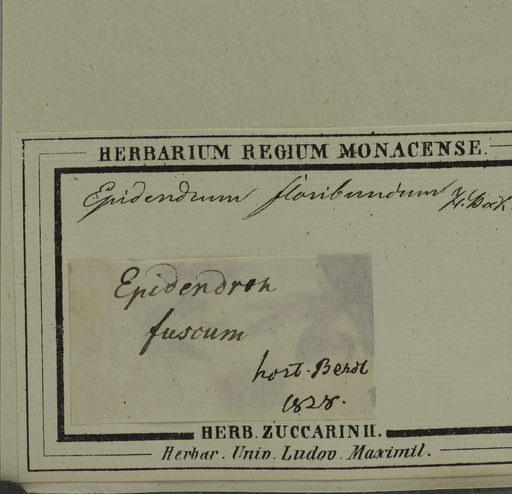 HERBARIUM REGIUM MONACENSE.
Epidendrum floribundum
Epidendron
fuscum
hort. Berol
1828.
HERB. ZUCCARINII.
Herbar. Univ. Ludov. Maximil.